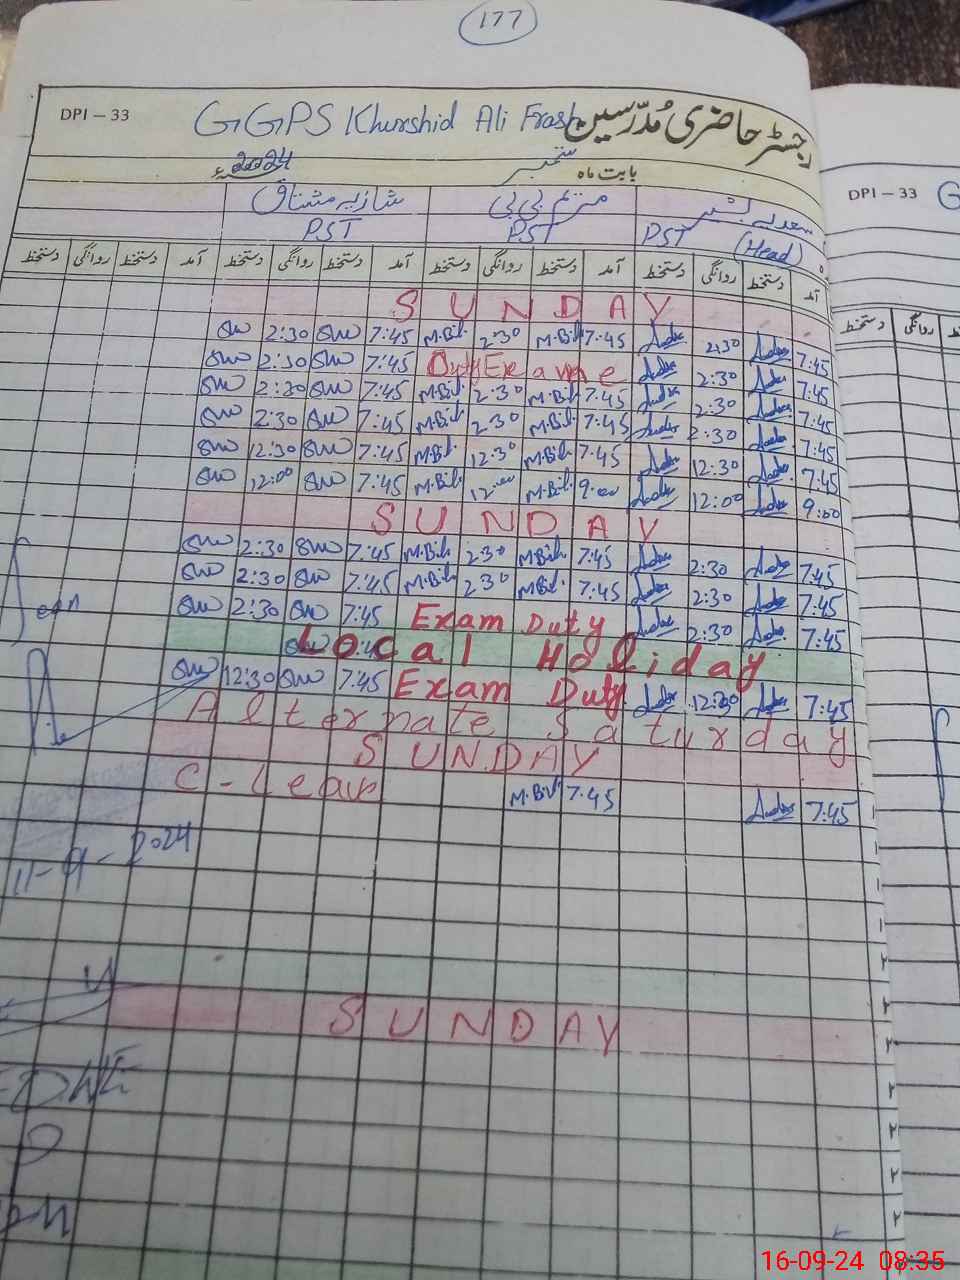 177
DPI – 33 GGPS Khurshid Ali Frash رجسٹر حاضری مُدرّسین
بابت ماہ ستمبر 2024ء
سعدیہ بشیر مریم بی بی شازیہ مشتاق
PST (Head) PST PST
آمد دستخط روانگی دستخط آمد دستخط روانگی دستخط آمد دستخط روانگی دستخط آمد دستخط روانگی دستخط
SUNDAY
2:30 7:45 M.Bibi 2:30 M.Bibi 7:45 2:30 7:45
2:30 7:45 Duty Exame 2:30 7:45
2:30 7:45 M.Bibi 2:30 M.Bibi 7:45 2:30 7:45
2:30 7:45 M.Bibi 2:30 M.Bibi 7:45 2:30 7:45
12:30 7:45 M.Bibi 12:30 M.Bibi 7:45 12:30 7:45
12:00 7:45 M.Bibi 12:00 M.Bibi 9:00 12:00 9:00
SUNDAY
2:30 7:45 M.Bibi 2:30 M.Bibi 7:45 2:30 7:45
2:30 7:45 M.Bibi 2:30 M.Bibi 7:45 2:30 7:45
2:30 7:45 Exam Duty 2:30 7:45
Local Holiday
12:30 7:45 Exam Duty 12:30 7:45
Alternate Saturday
SUNDAY
C-Leave M.Bibi 7:45 7:45
11-9-2024
SUNDAY
DPI – 33 G
دستخط روانگی
16-09-24 08:35